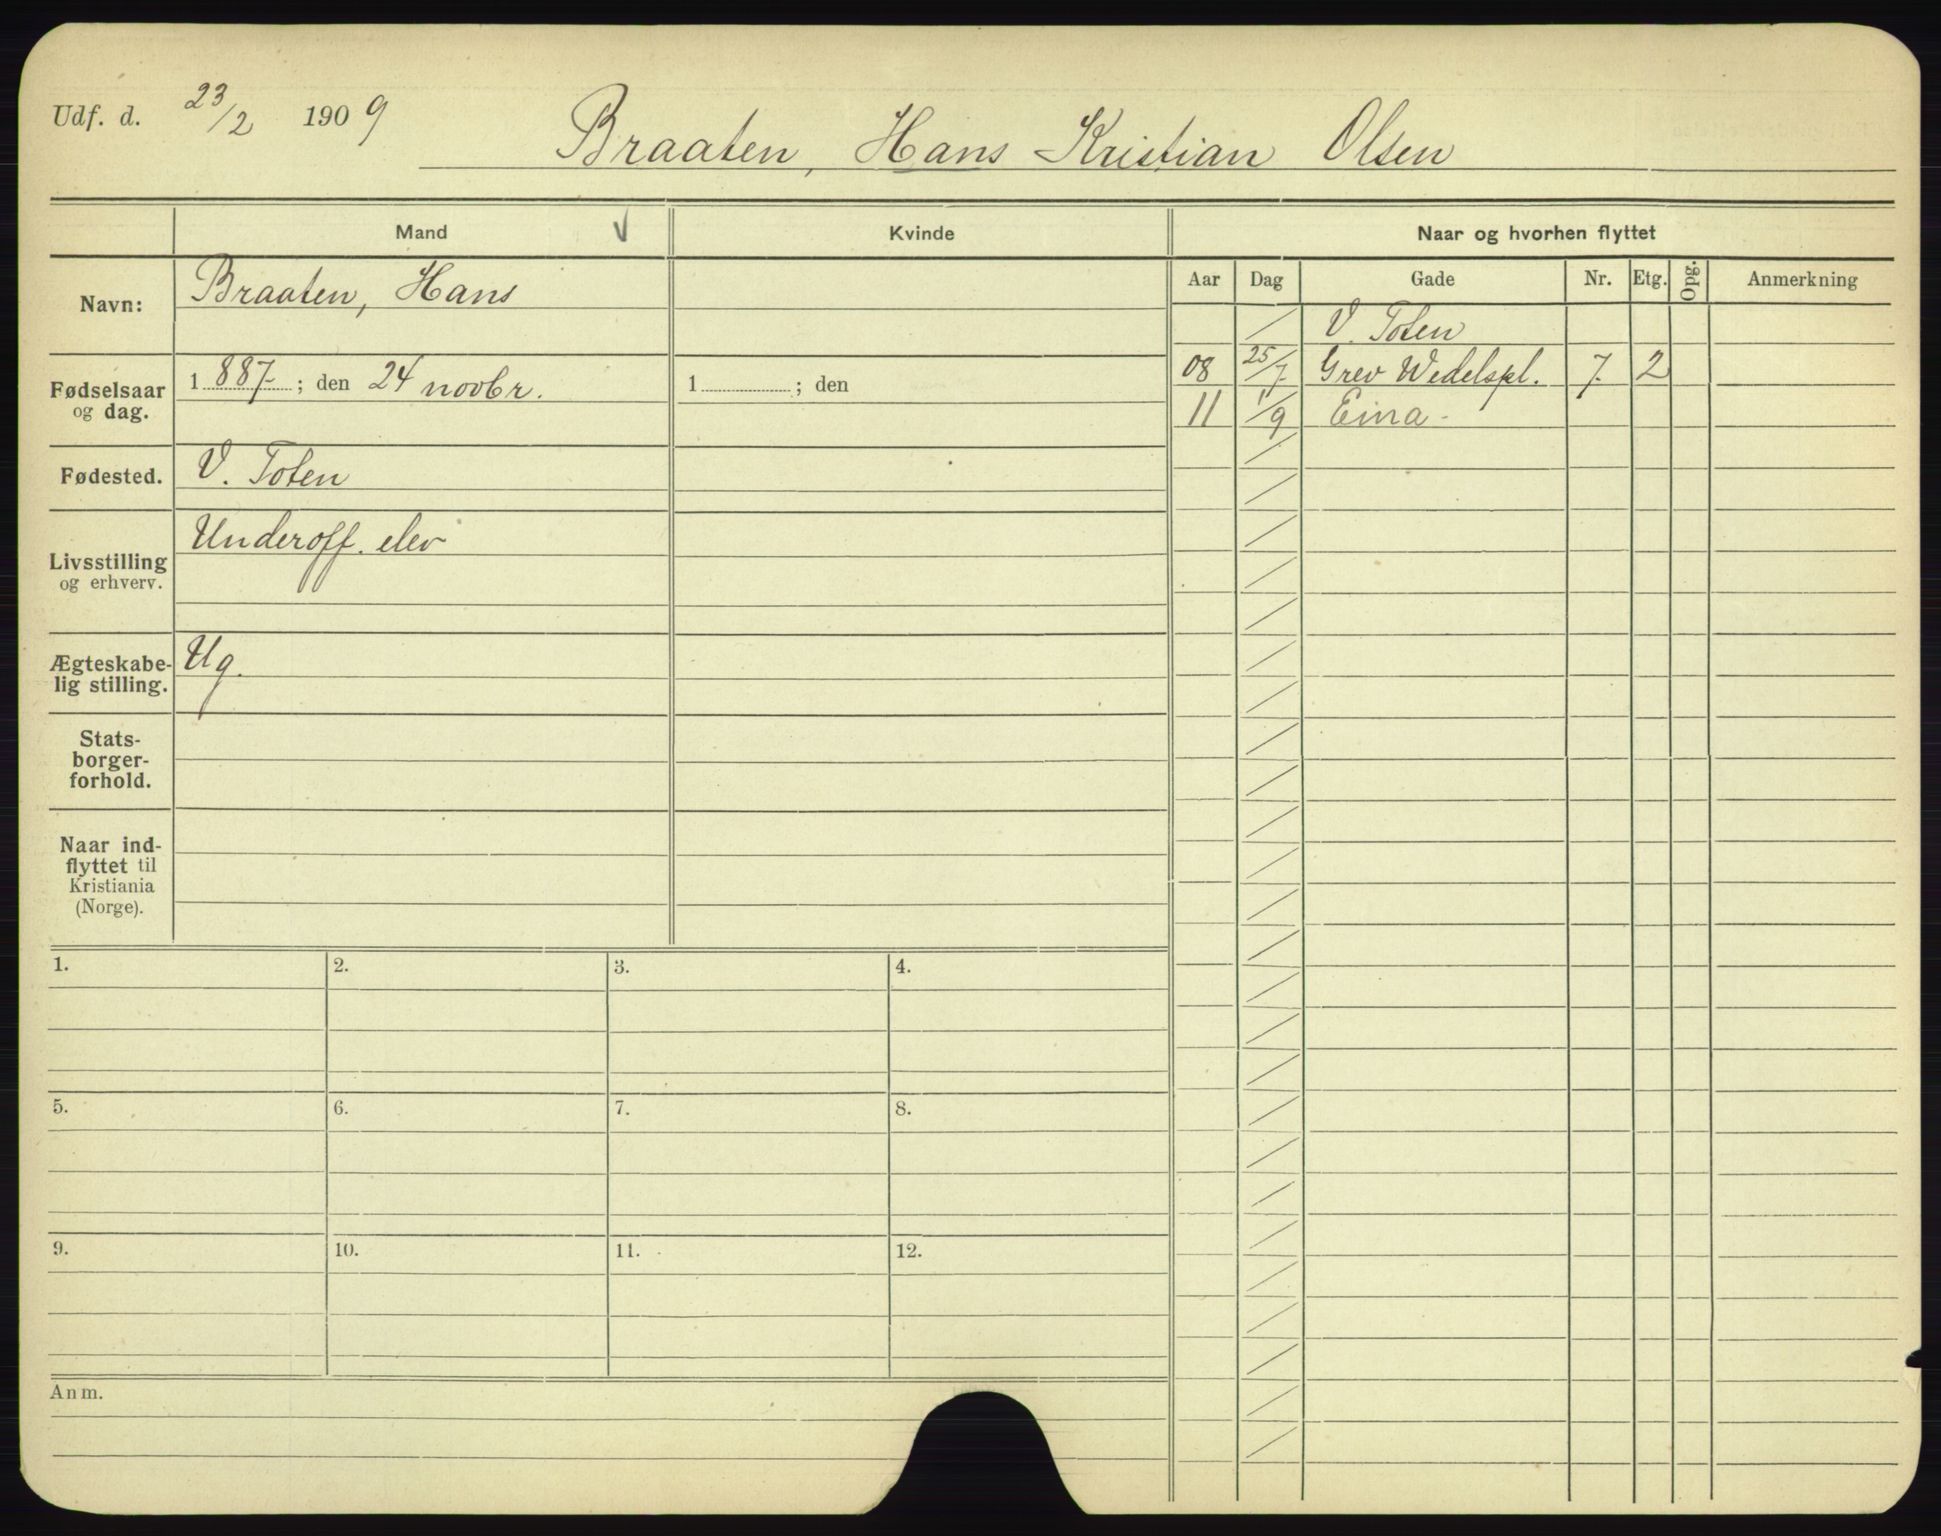 Udf. d. 23/2 1909
Braaten, Hans Kristian Olsen
Mand
Kvinde
Naar og hvorhen flyttet
Navn: Braaten, Hans
Fødselsaar og dag. 1887 ; den 24 novbr.
1 ; den
Fødested. V. Toten
Livsstilling og erhverv. Underoff. elev
Ægteskabe-
lig stilling. Ug.
Stats-
borger-
forhold.
Naar ind-
flyttet til
Kristiania
(Norge).
Aar Dag Gade Nr. Etg. Opg. Anmerkning
/ V. Toten
08 25/7 Grev Wedelspl. 7. 2
11 /9 Eina -
1. 2. 3. 4.
5. 6. 7. 8.
9. 10. 11. 12.
Anm.